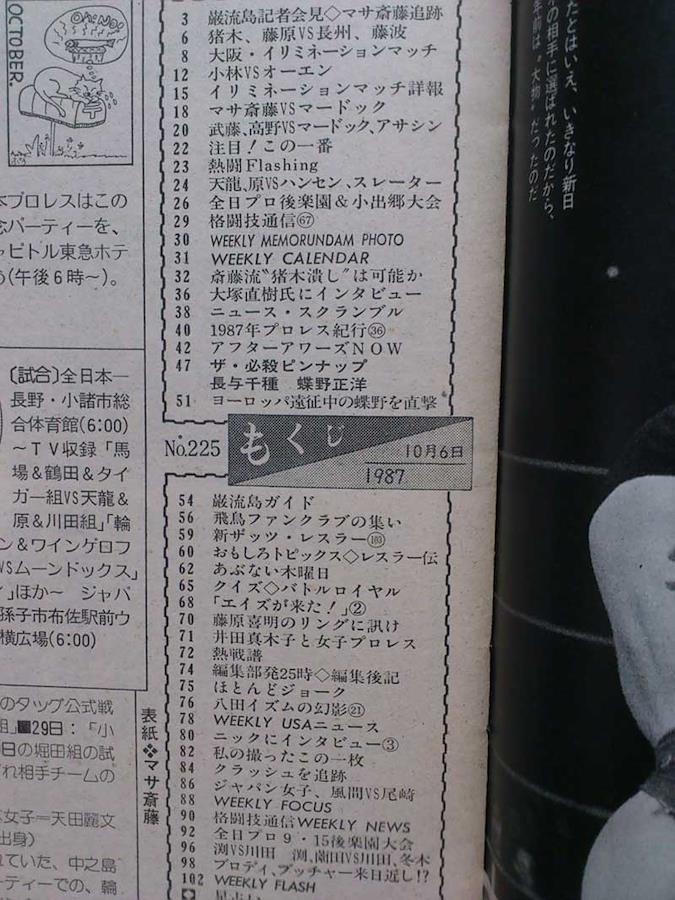 OCTOBER.
OH! NO!
本プロレスはこの
念パーティーを、
ャピトル東急ホテ
う(午後6時〜)。
〔試合〕全日本―
長野・小諸市総
合体育館(6:00)
〜TV収録「馬
場&鶴田&タイ
ガー組VS天龍&
原&川田組」「輪
ン&ワインゲロフ
VSムーンドックス」
」ほか〜 ジャパ
孫子市布佐駅前ウ
横広場(6:00)
のタッグ公式戦
組」■29日:「小
日の堀田組の試
ぞれ相手チームの
女子=天田麗文
出身)
れていた、中之島
ーティーでの、輪
3 巌流島記者会見◇マサ斎藤追跡
6 猪木、藤原VS長州、藤波
8 大阪・イリミネーションマッチ
12 小林VSオーエン
15 イリミネーションマッチ詳報
18 マサ斎藤VSマードック
20 武藤、高野VSマードック、アサシン
22 注目!この一番
23 熱闘Flashing
24 天龍、原VSハンセン、スレーター
26 全日プロ後楽園&小出郷大会
29 格闘技通信㊿
30 WEEKLY MEMORUNDAM PHOTO
31 WEEKLY CALENDAR
32 斎藤流〝猪木潰し〟は可能か
36 大塚直樹氏にインタビュー
38 ニュース・スクランブル
40 1987年プロレス紀行㊱
42 アフターアワーズNOW
47 ザ・必殺ピンナップ
長与千種 蝶野正洋
51 ヨーロッパ遠征中の蝶野を直撃
No.225 もくじ 10月6日
1987
54 巌流島ガイド
56 飛鳥ファンクラブの集い
59 新ザッツ・レスラー(103)
60 おもしろトピックス◇レスラー伝
62 あぶない木曜日
65 クイズ◇バトルロイヤル
68 「エイズが来た!」②
70 藤原喜明のリングに訊け
71 井田真木子と女子プロレス
72 熱戦譜
74 編集部発25時◇編集後記
75 ほとんどジョーク
76 八田イズムの幻影㉑
78 WEEKLY USAニュース
80 ニックにインタビュー③
82 私の撮ったこの一枚
84 クラッシュを追跡
86 ジャパン女子、風間VS尾崎
88 WEEKLY FOCUS
90 格闘技通信WEEKLY NEWS
92 全日プロ9・15後楽園大会
96 渕VS川田 渕、薗田VS川田、冬木
98 ブロディ、ブッチャー来日近し!?
102 WEEKLY FLASH
表紙❖マサ斎藤
たとはいえ、いきなり新日
の相手に選ばれたのだから、
年前は〝大物〟だったのだ